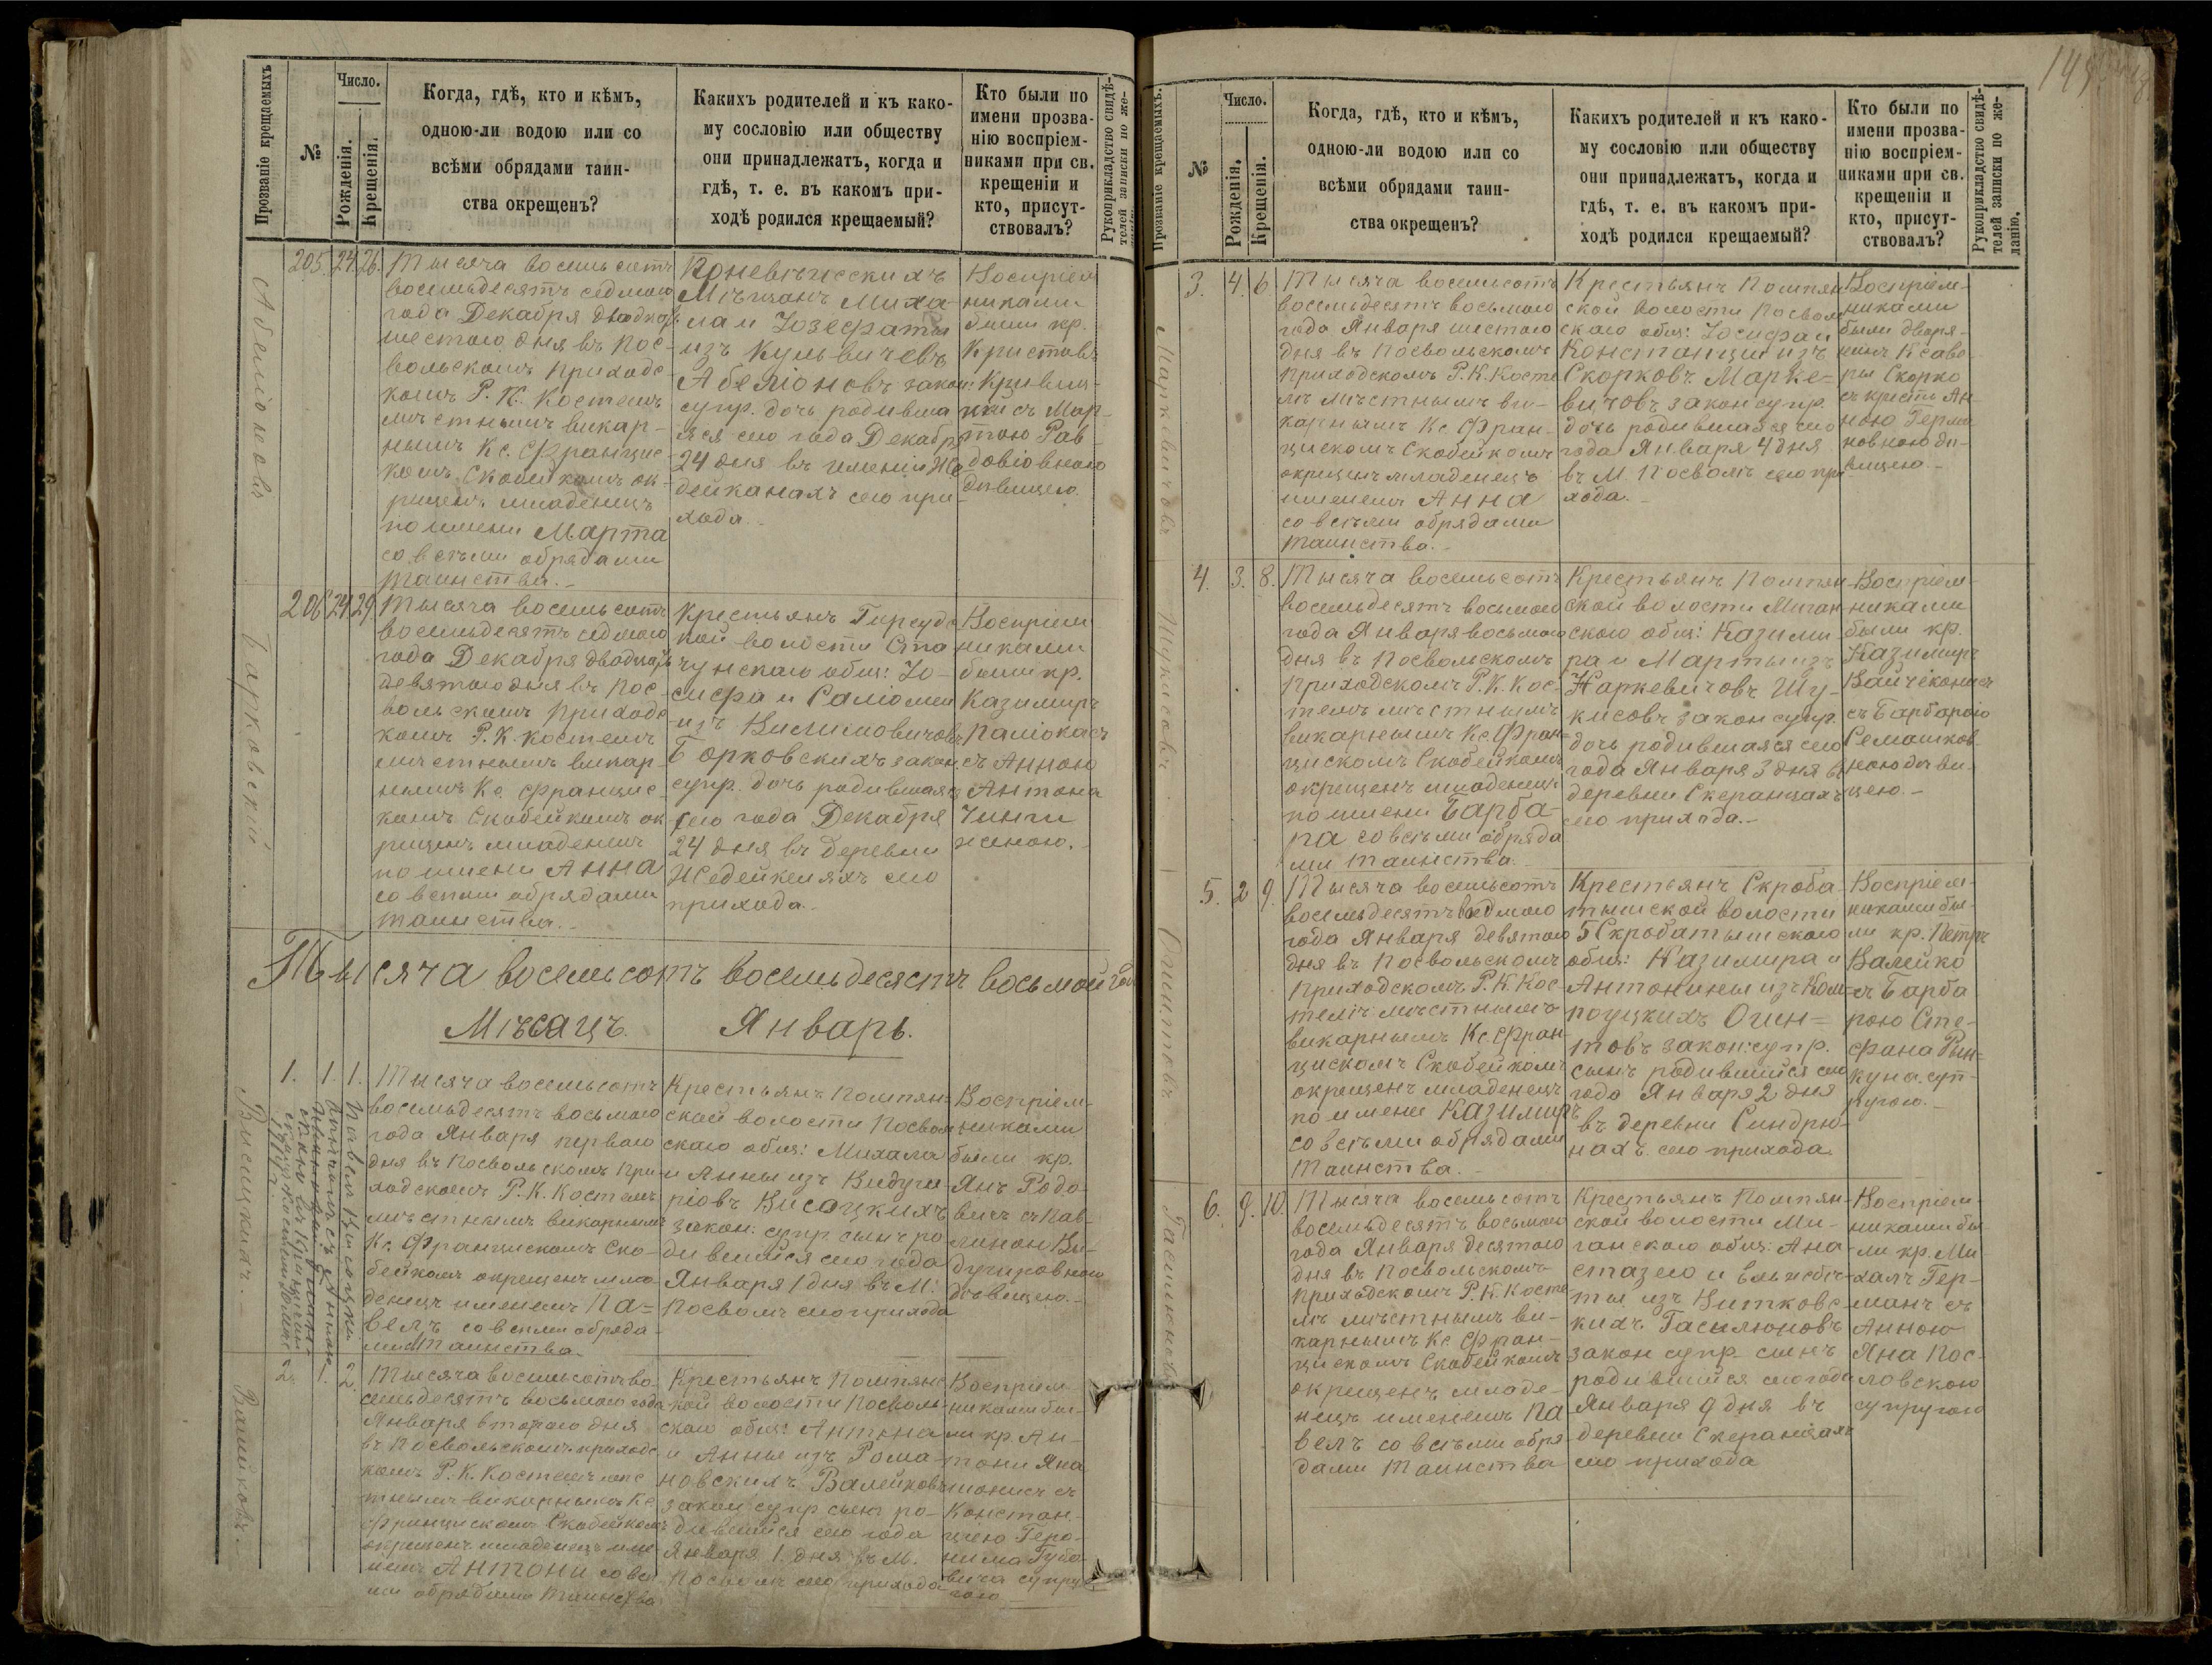 Прозваніе крещаемыхъ
№
Число.
Рожденія.
Крещенія.
Когда, гдѣ, кто и кѣмъ,
одною-ли водою или со
всѣми обрядами таин-
ства окрещенъ?
Какихъ родителей и къ како-
му сословію или обществу
они принадлежатъ, когда и
гдѣ, т. е. въ какомъ при-
ходѣ родился крещаемый?
Кто были по
имени прозва-
нію воспріем-
никами при св.
крещеніи и
кто, присут-
ствовалъ?
Рукоприкладство свидѣ-
телей записки по же-
205. 24. 26.
Тысяча восемьсотъ
восемьдесятъ седмого
года Декабря двадцать
шестого дня въ Пос-
вольскомъ приходс
комъ Р. К. Костелѣ
мѣстнымъ викар-
нымъ Кс. Францис-
комъ Скобейкомъ ок-
рещенъ младенецъ
по имени Марта
со всѣми обрядами
таинства.
Поневѣжскихъ
Мѣщанъ Миха-
ла и Іозефаты
изъ Кульвичевъ
закон:
супр. дочь родивша
яся сего года Декабря
24 дня въ имѣніи Же
дейканахъ сего при
хода.
Воспріем
никами
были кр.
Кристовъ
съ Мар-
тою Рав
довіовною
дѣвицею.
206 24 29
Тысяча восемьсотъ
восемьдесятъ седмого
года Декабря двадцать
девятого дня въ Пос-
вольскомъ приходс
комъ Р. К. Костелѣ
мѣстнымъ викар-
нымъ Кс. Францис-
комъ Скобейкомъ ок
рещенъ младенецъ
по имени Анна
со всѣми обрядами
таинства.
Крестьянъ
кой волости
общ: Іо-
сифа и Саломеи
изъ
Борковскихъ закон.
супр. дочь родившаяся
сего года Декабря
24 дня въ деревни
Жедейкеляхъ сего
прихода.
Воспріем
никами
были кр.
Казимиръ
съ Анною
Антона
женою.
Борковскій
Тысяча восемьсотъ восемьдесятъ восьмой год
Мѣсяцъ Январь.
1. 1. 1.
Тысяча восемьсотъ
восемьдесятъ восьмого
года Января первого
дня въ Посвольскомъ при-
ходскомъ Р. К. Костелѣ
мѣстнымъ викарнымъ
Кс. Францискомъ Ско-
бейкомъ окрещенъ мла-
денецъ именемъ Па-
велъ со всѣми обряда-
ми таинства.
Крестьянъ Помпян-
ской волости Посволь
скаго общ: Михала
и Анны изъ Видуги
ріовъ Висоцкихъ
закон: супр. сынъ ро-
дившійся сего года
Января 1 дня въ М:
Посволѣ сего прихода
Воспріем-
никами
были кр.
Янъ Родо-
вичъ съ Пав-
линою Ви-
дугировною
дѣвицею.
Висоцкихъ.
2. 1. 2.
Тысяча восемьсотъ во-
семьдесятъ восьмого года
Января второго дня
въ Посвольскомъ приходс
комъ Р. К. Костелѣ мѣс
тнымъ викарнымъ Кс
Францискомъ Скобейкомъ
окрещенъ младенецъ име
немъ Антони со всѣ
ми обрядами таинства
Крестьянъ Помпянс
кой волости Посволь-
скаго общ: Антона
и Анны изъ Рома-
новскихъ Валейковъ
закон супр сынъ ро-
дившійся сего года
Января 1. дня въ М.
Посволѣ сего прихода
Воспріем-
никами бы-
ли кр. Ан-
тони
съ
Констан-
цею Геро-
нима
супру
гою
Валейковъ.
Прозваніе крещаемыхъ.
№
Число.
Рожденія.
Крещенія.
Когда, гдѣ, кто и кѣмъ,
одною-ли водою или со
всѣми обрядами таин-
ства окрещенъ?
Какихъ родителей и къ како-
му сословію или обществу
они принадлежатъ, когда и
гдѣ, т. е. въ какомъ при-
ходѣ родился крещаемый?
Кто были по
имени прозва-
нію воспріем-
никами при св.
крещеніи и
кто, присут-
ствовалъ?
Рукоприкладство свидѣ-
телей записки по же-
ланію.
3. 4. 6.
Тысяча восемьсотъ
восемьдесятъ восьмого
года Января шестого
дня въ Посвольскомъ
приходскомъ Р. К. Косте
лѣ мѣстнымъ ви-
карнымъ Кс Фран-
цискомъ Скобейкомъ
окрещенъ младенецъ
именемъ Анна
со всѣми обрядами
таинства.
Крестьянъ Помпян
ской волости Посволь
скаго общ: Іосифа и
Констанціи изъ
Скорковъ Марке-
вичовъ закон супр.
дочь родившаяся сего
года Января 4 дня
въ М. Посволѣ сего при
хода.
Воспріем-
никами
были дворя-
нинъ Ксаве-
рій Скорко
съ крест. Ан-
ною Герма
новною дѣ-
вицею.
4. 3. 8.
Тысяча восемьсотъ
восемьдесятъ восьмого
года Января восьмого
дня въ Посвольскомъ
приходскомъ Р. К. Кос-
телѣ мѣстнымъ
викарнымъ Кс Фран-
цискомъ Скобейкомъ
окрещенъ младенецъ
по имени Барба-
ра со всѣми обряда
ми таинства.
Крестьянъ Помпян
ской волости Миган
скаго общ: Казими
ра и Марты изъ
Наркевичовъ Шу-
кисовъ закон супр.
дочь родившаяся сего
года Января 3 дня въ
деревни Скеранцахъ
сего прихода.
Воспріем-
никами
были кр.
Казимиръ
съ Барбарою
Семашков-
ною дѣви-
цею.
Шукисовъ
5. 2 9.
Тысяча восемьсотъ
восемьдесятъ
года Января девятого
дня въ Посвольскомъ
приходскомъ Р. К. Кос-
телѣ мѣстнымъ
викарнымъ Кс. Фран
цискомъ Скобейкомъ
окрещенъ младенецъ
по имени Казимиръ
со всѣми обрядами
таинства.
Крестьянъ Скроба-
тышской волости
Скробатышскаго
общ: Казимира и
Антонины изъ Ком-
Огин-
товъ закон: супр.
сынъ родившійся сего
года Января 2 дня
въ деревни Синдрю-
нахъ сего прихода.
Воспріем-
никами бы-
ли кр. Петръ
Валейко
съ Барба
рою Сте-
фана Рин-
куна суп-
ругою.
Огинтовъ
6. 9. 10.
Тысяча восемьсотъ
восемьдесятъ восьмого
года Января десятого
дня въ Посвольскомъ
приходскомъ Р. К. Косте
лѣ мѣстнымъ ви-
карнымъ Кс Фран-
цискомъ Скобейкомъ
окрещенъ младе-
нецъ именемъ Па
велъ со всѣми обря-
дами таинства
Крестьянъ Помпян-
ской волости Ми-
ганскаго общ: Ана
стазего и Ельжбѣ-
ты изъ Витковс
кихъ Гасюлюновъ
закон супр сынъ
родившійся сего года
Января 9 дня въ
деревни Скеранцахъ
сего прихода
Воспріем-
никами бы
ли кр. Ми
халъ Гер-
манъ съ
Анною
Яна Пос-
ловскою
супругою